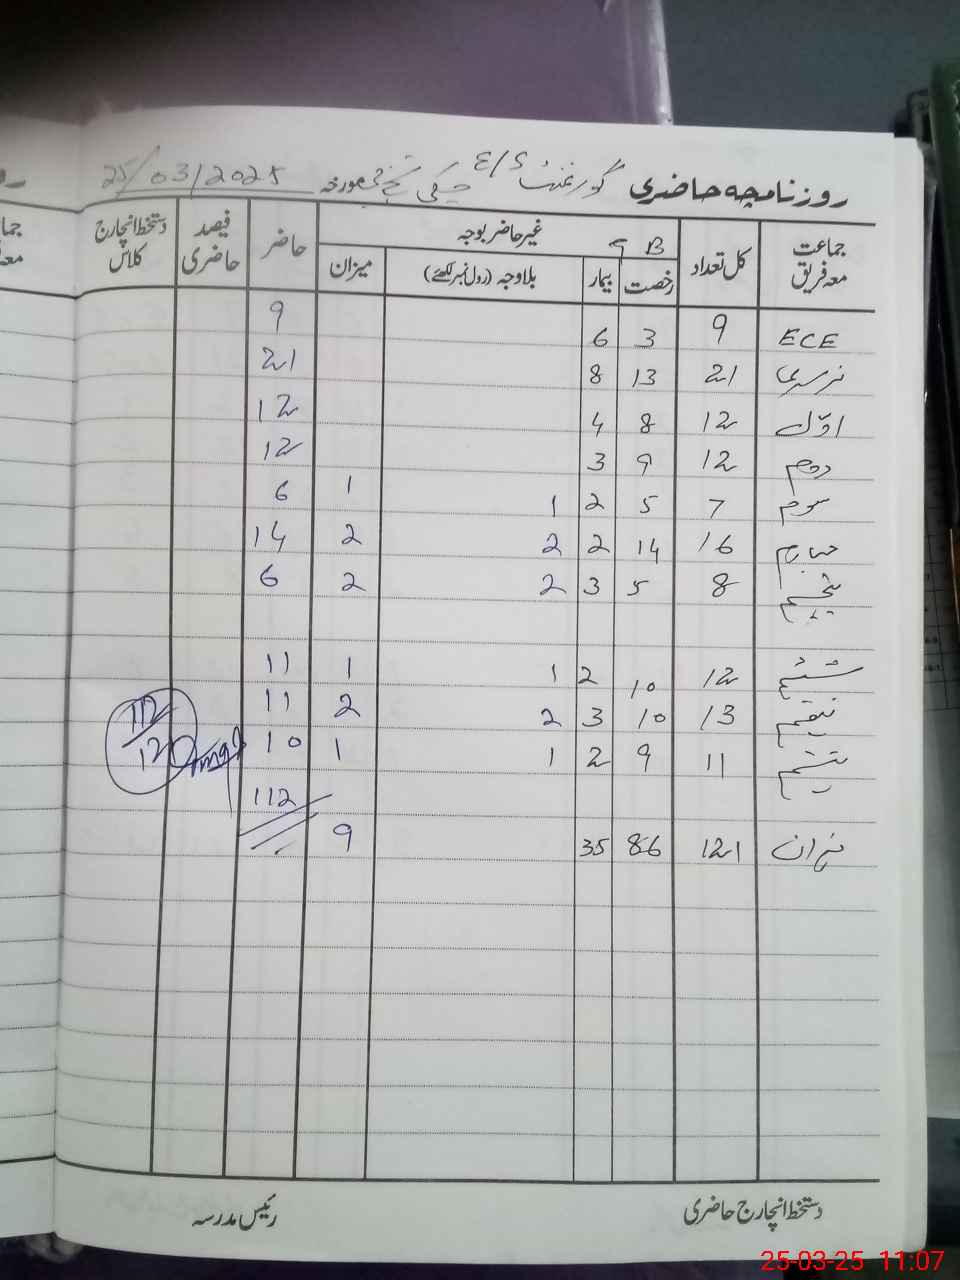 روزنامچہ حاضری گورنمنٹ E/S چکی مورخہ 25/03/2025
جماعت معہ فریق کل تعداد B G غیر حاضر بوجہ حاضر فیصد حاضری دستخط انچارج کلاس
رخصت بیمار بلاوجہ (رول نمبر لکھئے) میزان
ECE 9 3 6 9
نرسری 21 13 8 21
اوّل 12 8 4 12
دوم 12 9 3 12
سوم 7 5 2 1 1 6
چہارم 16 14 2 2 2 14
پنجم 8 5 3 2 2 6
ششم 12 10 2 1 1 11
ہفتم 13 10 3 2 2 11
ہشتم 11 9 2 1 1 10
112
112
120
میزان 121 86 35 9
دستخط انچارج حاضری رئیس مدرسہ
جما
معہ
رو
25-03-25 11:07